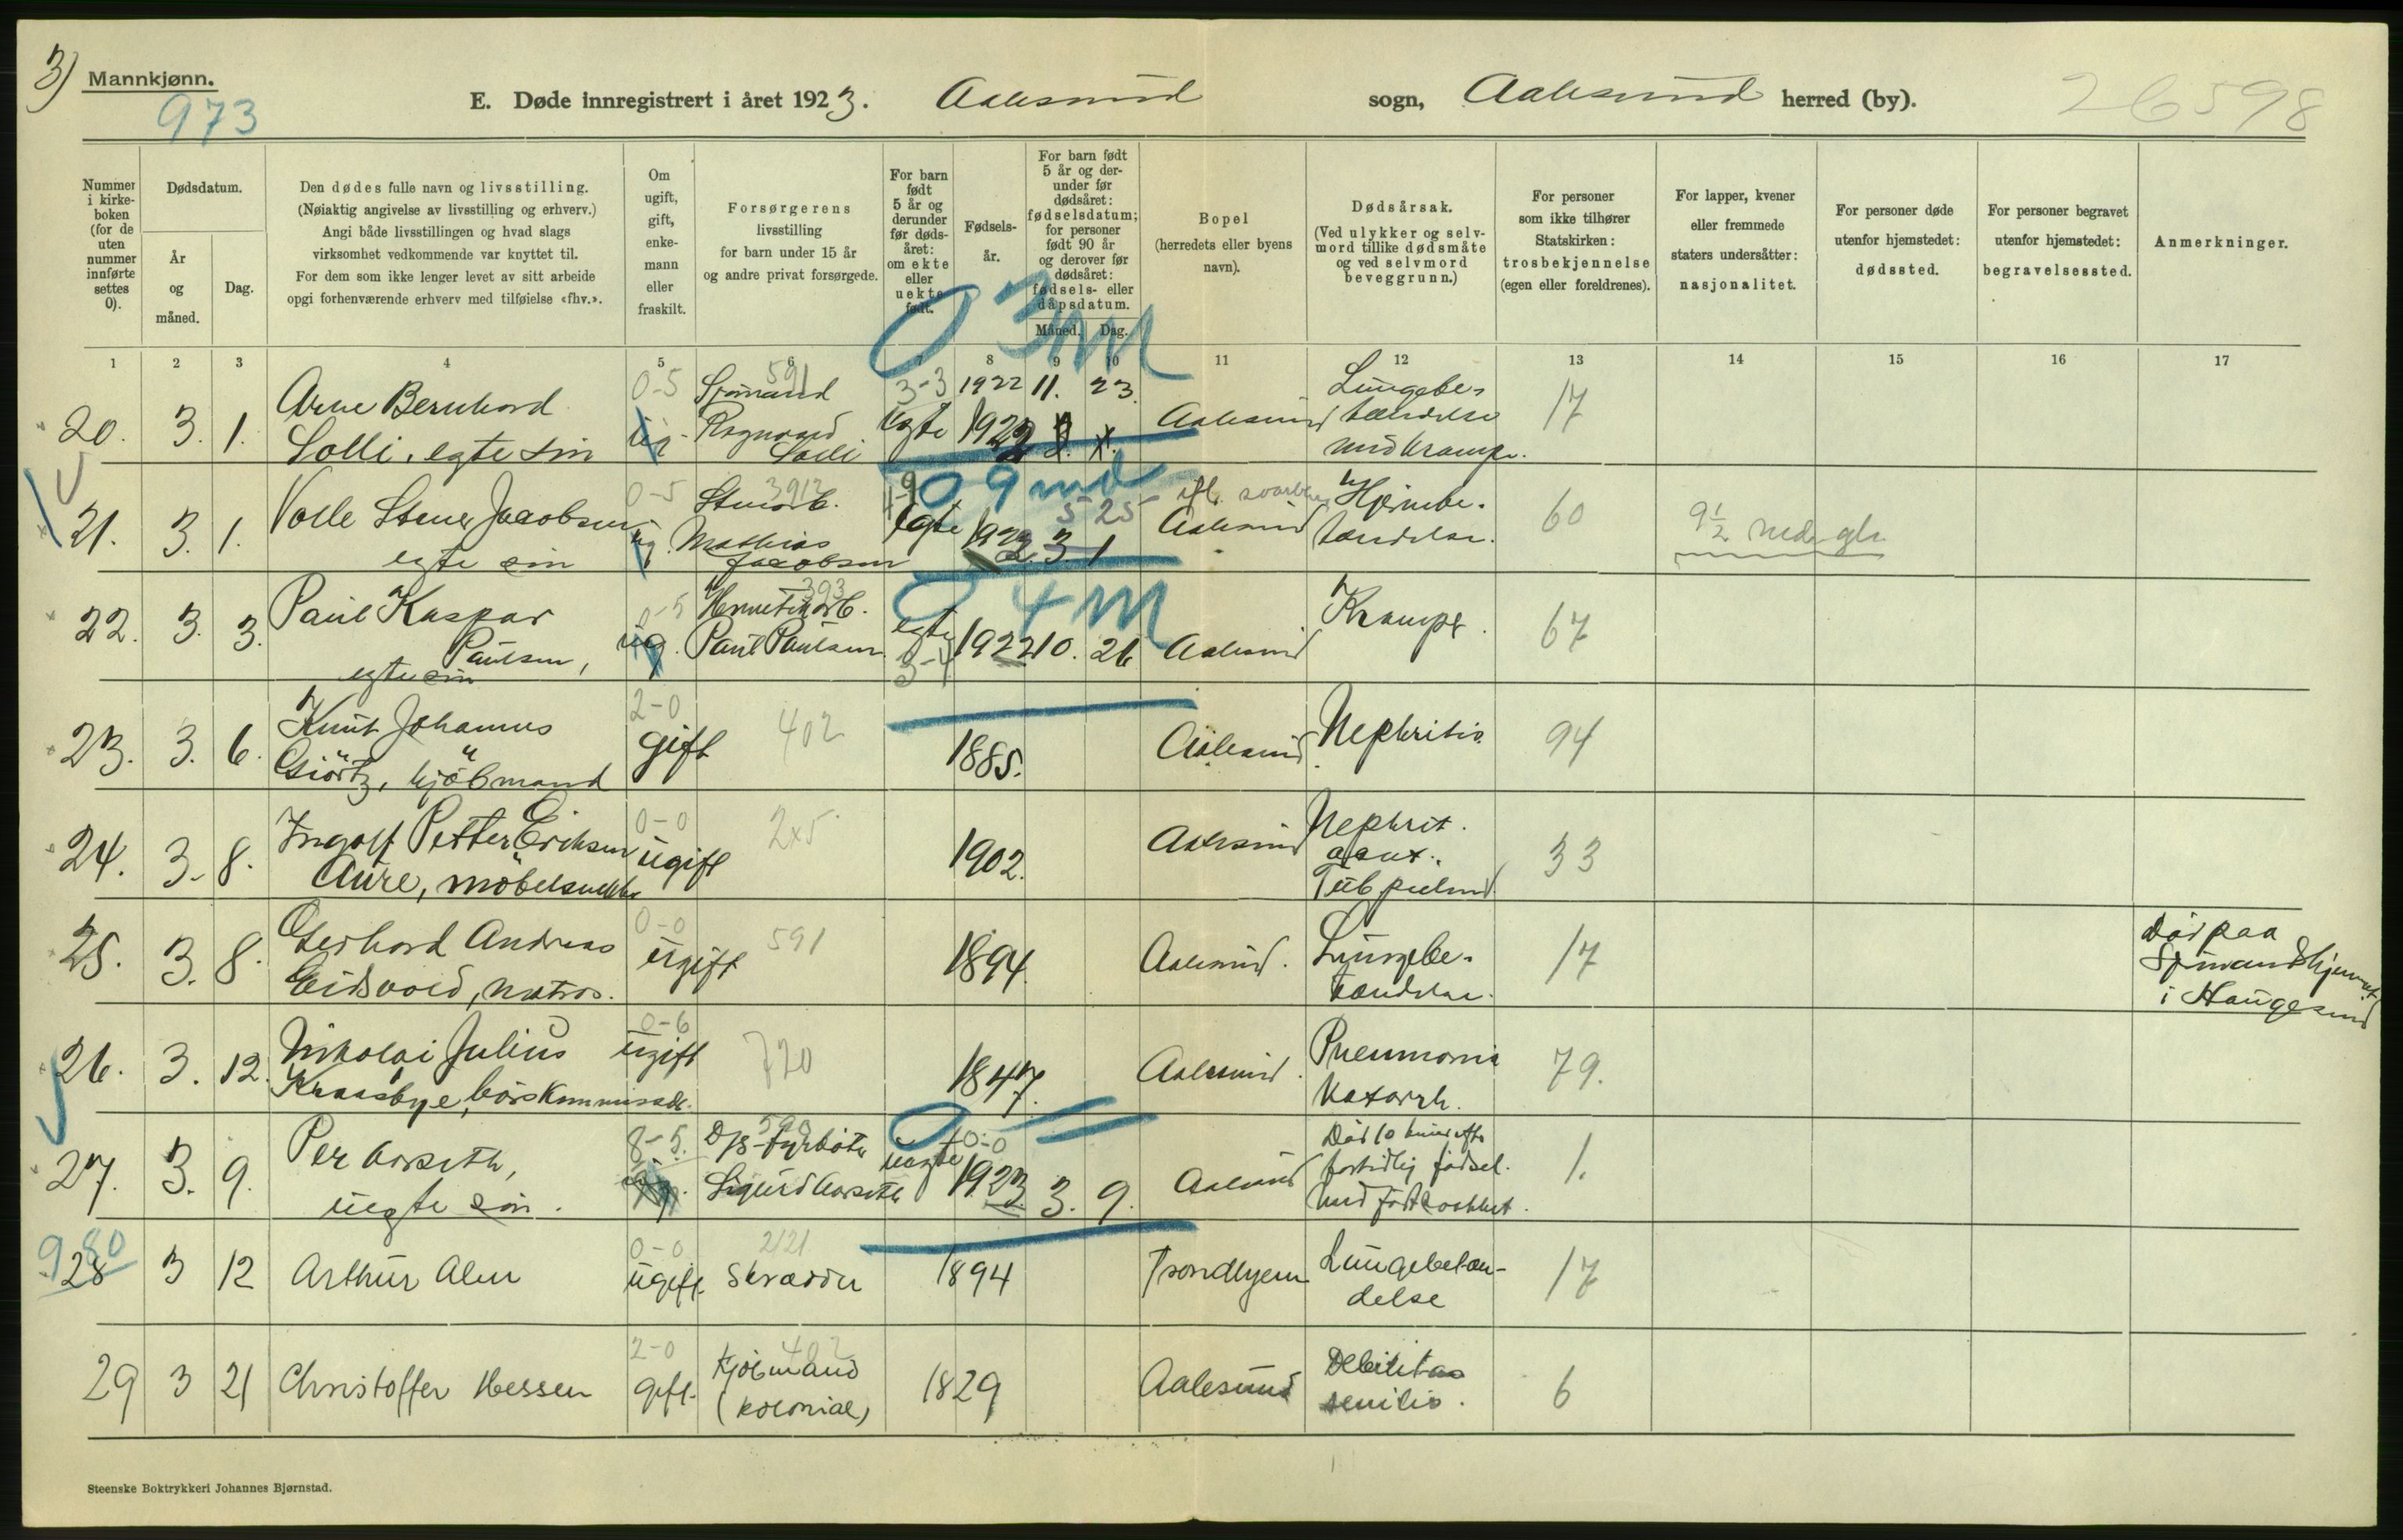 3)
Mannkjønn.
973
E. Døde innregistrert i året 1923. Aalesund sogn, Aalesund herred (by).
26598
Nummer i kirke-boken (for de uten nummer innførte settes 0).
Dødsdatum.
År og måned.
Dag.
Den dødes fulle navn og livsstilling.
(Nøiaktig angivelse av livsstilling og erhverv.)
Angi både livsstillingen og hvad slags
virksomhet vedkommende var knyttet til.
For dem som ikke lenger levet av sitt arbeide
opgi forhenværende erhverv med tilføielse «fhv.».
Om ugift, gift, enke-mann eller fraskilt.
Forsørgerens
livsstilling
for barn under 15 år
og andre privat forsørgede.
For barn født 5 år og derunder før døds-året: om ekte eller uekte født.
Fødsels-år.
For barn født 5 år og der-under før dødsåret: fødselsdatum; for personer født 90 år og derover før dødsåret: fødsels- eller dåpsdatum.
Måned. Dag.
Bopel
(herredets eller byens
navn).
Dødsårsak.
(Ved ulykker og selv-
mord tillike dødsmåte
og ved selvmord
beveggrunn.)
For personer
som ikke tilhører
Statskirken:
trosbekjennelse
(egen eller foreldrenes).
For lapper, kvener
eller fremmede
staters undersåtter:
nasjonalitet.
For personer døde
utenfor hjemstedet:
dødssted.
For personer begravet
utenfor hjemstedet:
begravelsessted.
Anmerkninger.
1 2 3 4 5 6 7 8 9 10 11 12 13 14 15 16 17
0 3 m
0-5 591 3-3 1922 11. 23.
20. 3. 1. Arne Bernhard
Solli, egte søn
ug. Sjømand
Ragnvald
Solli
Egte 1922 Aalesund
Lungebe-
tændelse
med krampe.
17
0 9 md
0-5 3912 5 25
21. 3. 1. Valle Stener Jacobsen
egte søn
ug. Stenarb.
Mathias
Jacobsen
Egte 1922 3. 1 Aalesund
Hjernebe-
tændelse.
60
9½ mdr gl.
0 4 M
0-5 393
22. 3. 3. Paul Kaspar
Paulsen,
egte søn
ug. Hermetikarb.
Paul Paulsen
egte 3-4 1922 10. 26 Aalesund
Krampe.
67
2-0
23. 3. 6. Knut Johannes
Giörtz, kjöbmand
gift 402 1885. Aalesund Nephritis 94
0-0
24. 3. 8. Ingolf Petter Eriksen
Aure, möbelsnekker
ugift 2x5 1902. Aalesund
Nephrit.
acut.
Tub. pulmn.
33
0-0
25. 3. 8. Gerhard Andreas
Eidsvold, matros.
ugift 591 1894. Aalesund.
Lungebe-
tændelse.
17
Död paa
Sjømandshjemmet
i Haugesund
0-6
26. 3. 12. Nikolai Julius
Kraasbye, börskommissær.
ugift 720 1847. Aalesund.
Pneumonia
katarrh.
79.
0
8-5. 0-0
27. 3. 9. Per Aarseth,
uegte søn.
ug. D/s fyrböter
Sigurd Aarseth
uegte 1923 3. 9. Aalesund
Död 10 timer efter
fortidlig födsel.
1.
980
28 3 12 Arthur Alm
0-0
ugift 2121
Skrædder 1894 Trondhjem
Lungebetæn-
delse
17
29 3 21 Christoffer Hessen
2-0
gift. 402
Kjöbmand
(kolonial) 1829 Aalesund
Debilitas
senilis.
6
Steenske Boktrykkeri Johannes Bjørnstad.